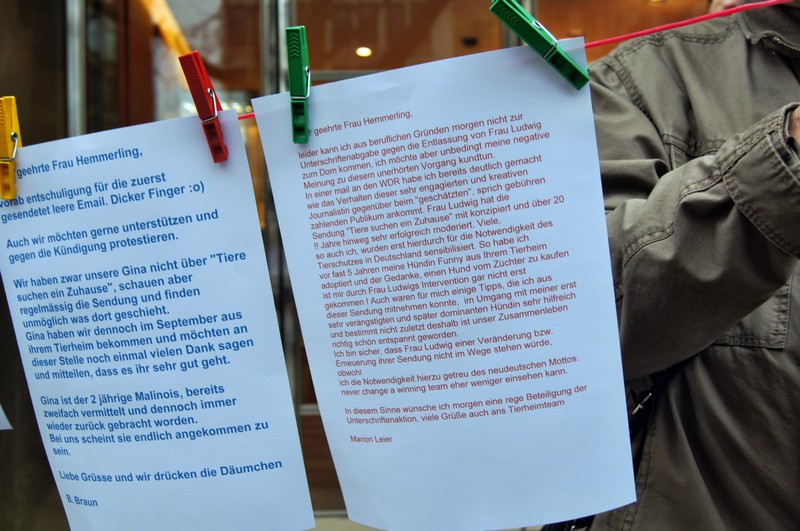 geehrte Frau Hemmerling,
vorab entschuligung für die zuerst
gesendetet leere Email. Dicker Finger :o)
Auch wir möchten gerne unterstützen und
gegen die Kündigung protestieren.
Wir haben zwar unsere Gina nicht über "Tiere
suchen ein Zuhause", schauen aber
regelmässig die Sendung und finden
unmöglich was dort geschieht.
Gina haben wir dennoch im September aus
ihrem Tierheim bekommen und möchten an
dieser Stelle noch einmal vielen Dank sagen
und mitteilen, dass es ihr sehr gut geht.
Gina ist der 2 jährige Malinois, bereits
zweifach vermittelt und dennoch immer
wieder zurück gebracht worden.
Bei uns scheint sie endlich angekommen zu
sein.
Liebe Grüsse und wir drücken die Däumchen
B. Braun
geehrte Frau Hemmerling,
leider kann ich aus beruflichen Gründen morgen nicht zur
Unterschriftenabgabe gegen die Entlassung von Frau Ludwig
zum Dom kommen, ich möchte aber unbedingt meine negative
Meinung zu diesem unerhörten Vorgang kundtun.
In einer mail an den WDR habe ich bereits deutlich gemacht
wie das Verhalten dieser sehr engagierten und kreativen
Journalistin gegenüber beim "geschätzten", sprich gebühren
zahlenden Publikum ankommt. Frau Ludwig hat die
Sendung "Tiere suchen ein Zuhause" mit konzipiert und über 20
!! Jahre hinweg sehr erfolgreich moderiert. Viele,
so auch ich, wurden erst hierdurch für die Notwendigkeit des
Tierschutzes in Deutschland sensibilisiert. So habe ich
vor fast 5 Jahren meine Hündin Funny aus Ihrem Tierheim
adoptiert und der Gedanke, einen Hund vom Züchter zu kaufen
ist mir durch Frau Ludwigs Intervention gar nicht erst
gekommen ! Auch waren für mich einige Tipps, die ich aus
dieser Sendung mitnehmen konnte, im Umgang mit meiner erst
sehr verängstigten und später dominanten Hündin sehr hilfreich
und bestimmt nicht zuletzt deshalb ist unser Zusammenleben
richtig schön entspannt geworden.
Ich bin sicher, dass Frau Ludwig einer Veränderung bzw.
Erneuerung ihrer Sendung nicht im Wege stehen würde,
obwohl
ich die Notwendigkeit hierzu getreu des neudeutschen Mottos:
never change a winning team eher weniger einsehen kann.
In diesem Sinne wünsche ich morgen eine rege Beteiligung der
Unterschriftenaktion, viele Grüße auch ans Tierheimteam
Marion Leier